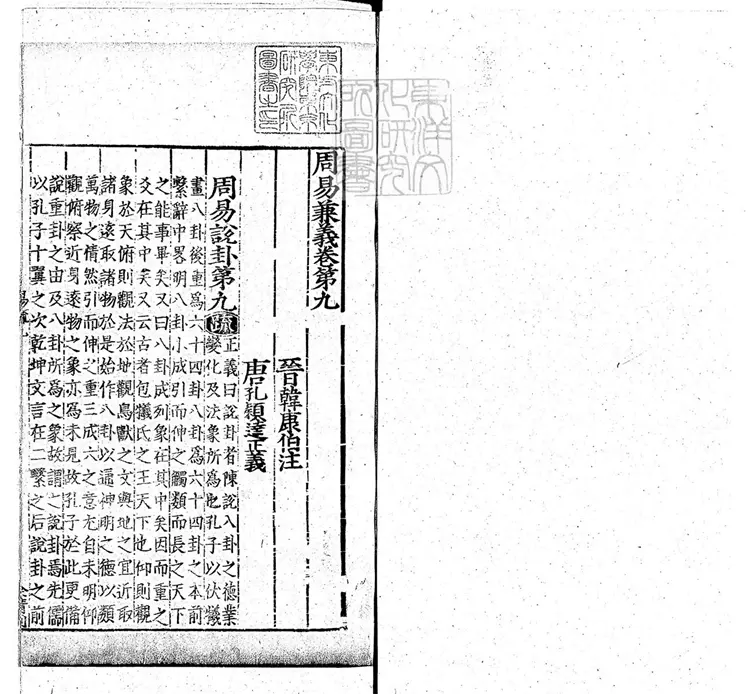 東方文化
學院東京
研究所
圖書之印
東洋文
化研究
所圖書
周易兼義卷第九
晉韓康伯注
唐孔穎達正義
周易說卦第九疏正義曰說卦者陳說八卦之德業
變化及法象所爲也孔子以伏犧
畫八卦後重爲六十四卦八卦爲六十四卦之本前
繫辭中畧明八卦小成引而伸之觸類而長之天下
之能事畢矣又曰八卦成列象在其中矣因而重之
爻在其中矣又云古者包犧氏之王天下也仰則觀
象於天俯則觀法於地觀鳥獸之文與地之宜近取
諸身遠取諸物於是始作八卦以通神明之德以類
萬物之情然引而伸之重三成六之意尤自未明仰
觀俯察近身遠物之象亦爲未見故孔子於此更備
說重卦之由及八卦所爲之象故謂之說卦焉先儒
以孔子十翼之次乾坤文言在二繫之后說卦之前